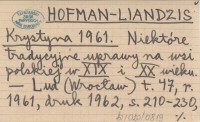 HOFMAN-LIANDZIS
Krystyna 1961. Niektóre
tradycyjne uprawy na wsi
polskiej w XIX i XX wieku.
— Lud (Wrocław) t. 47, r.
1961, druk 1962, s. 210-230,